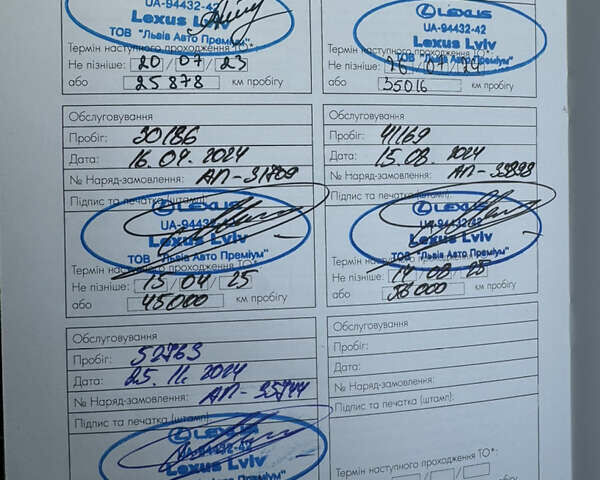 UA-94432-42
Lexus Lviv
ТОВ "Львів Авто Преміум"
Термін наступного проходження ТО*:
Не пізніше: 20 / 07 / 23
або 25878 км пробігу
LEXUS
UA-94432-42
Lexus Lviv
ТОВ "Львів Авто Преміум"
Термін наступного проходження ТО*:
Не пізніше: 26 / 07 / 24
або 35016 км пробігу
Обслуговування
Пробіг: 30186
Дата: 16.04.2024
№ Наряд-замовлення: АП-31709
Підпис та печатка (штамп):
LEXUS
UA-94432-42
Lexus Lviv
ТОВ "Львів Авто Преміум"
Термін наступного проходження ТО*:
Не пізніше: 15 / 04 / 25
або 45000 км пробігу
Обслуговування
Пробіг: 41169
Дата: 15.08.2024
№ Наряд-замовлення: АП-33898
Підпис та печатка (штамп):
LEXUS
UA-94432-42
Lexus Lviv
ТОВ "Львів Авто Преміум"
Термін наступного проходження ТО*:
Не пізніше: 14 / 08 / 25
або 56000 км пробігу
Обслуговування
Пробіг: 52763
Дата: 25.11.2024
№ Наряд-замовлення: АП-35744
Підпис та печатка (штамп):
LEXUS
UA-94432-42
Lexus Lviv
ТОВ "Львів Авто Преміум"
Обслуговування
Пробіг:
Дата:
№ Наряд-замовлення:
Підпис та печатка (штамп):
Термін наступного проходження ТО*:
Не пізніше: / /